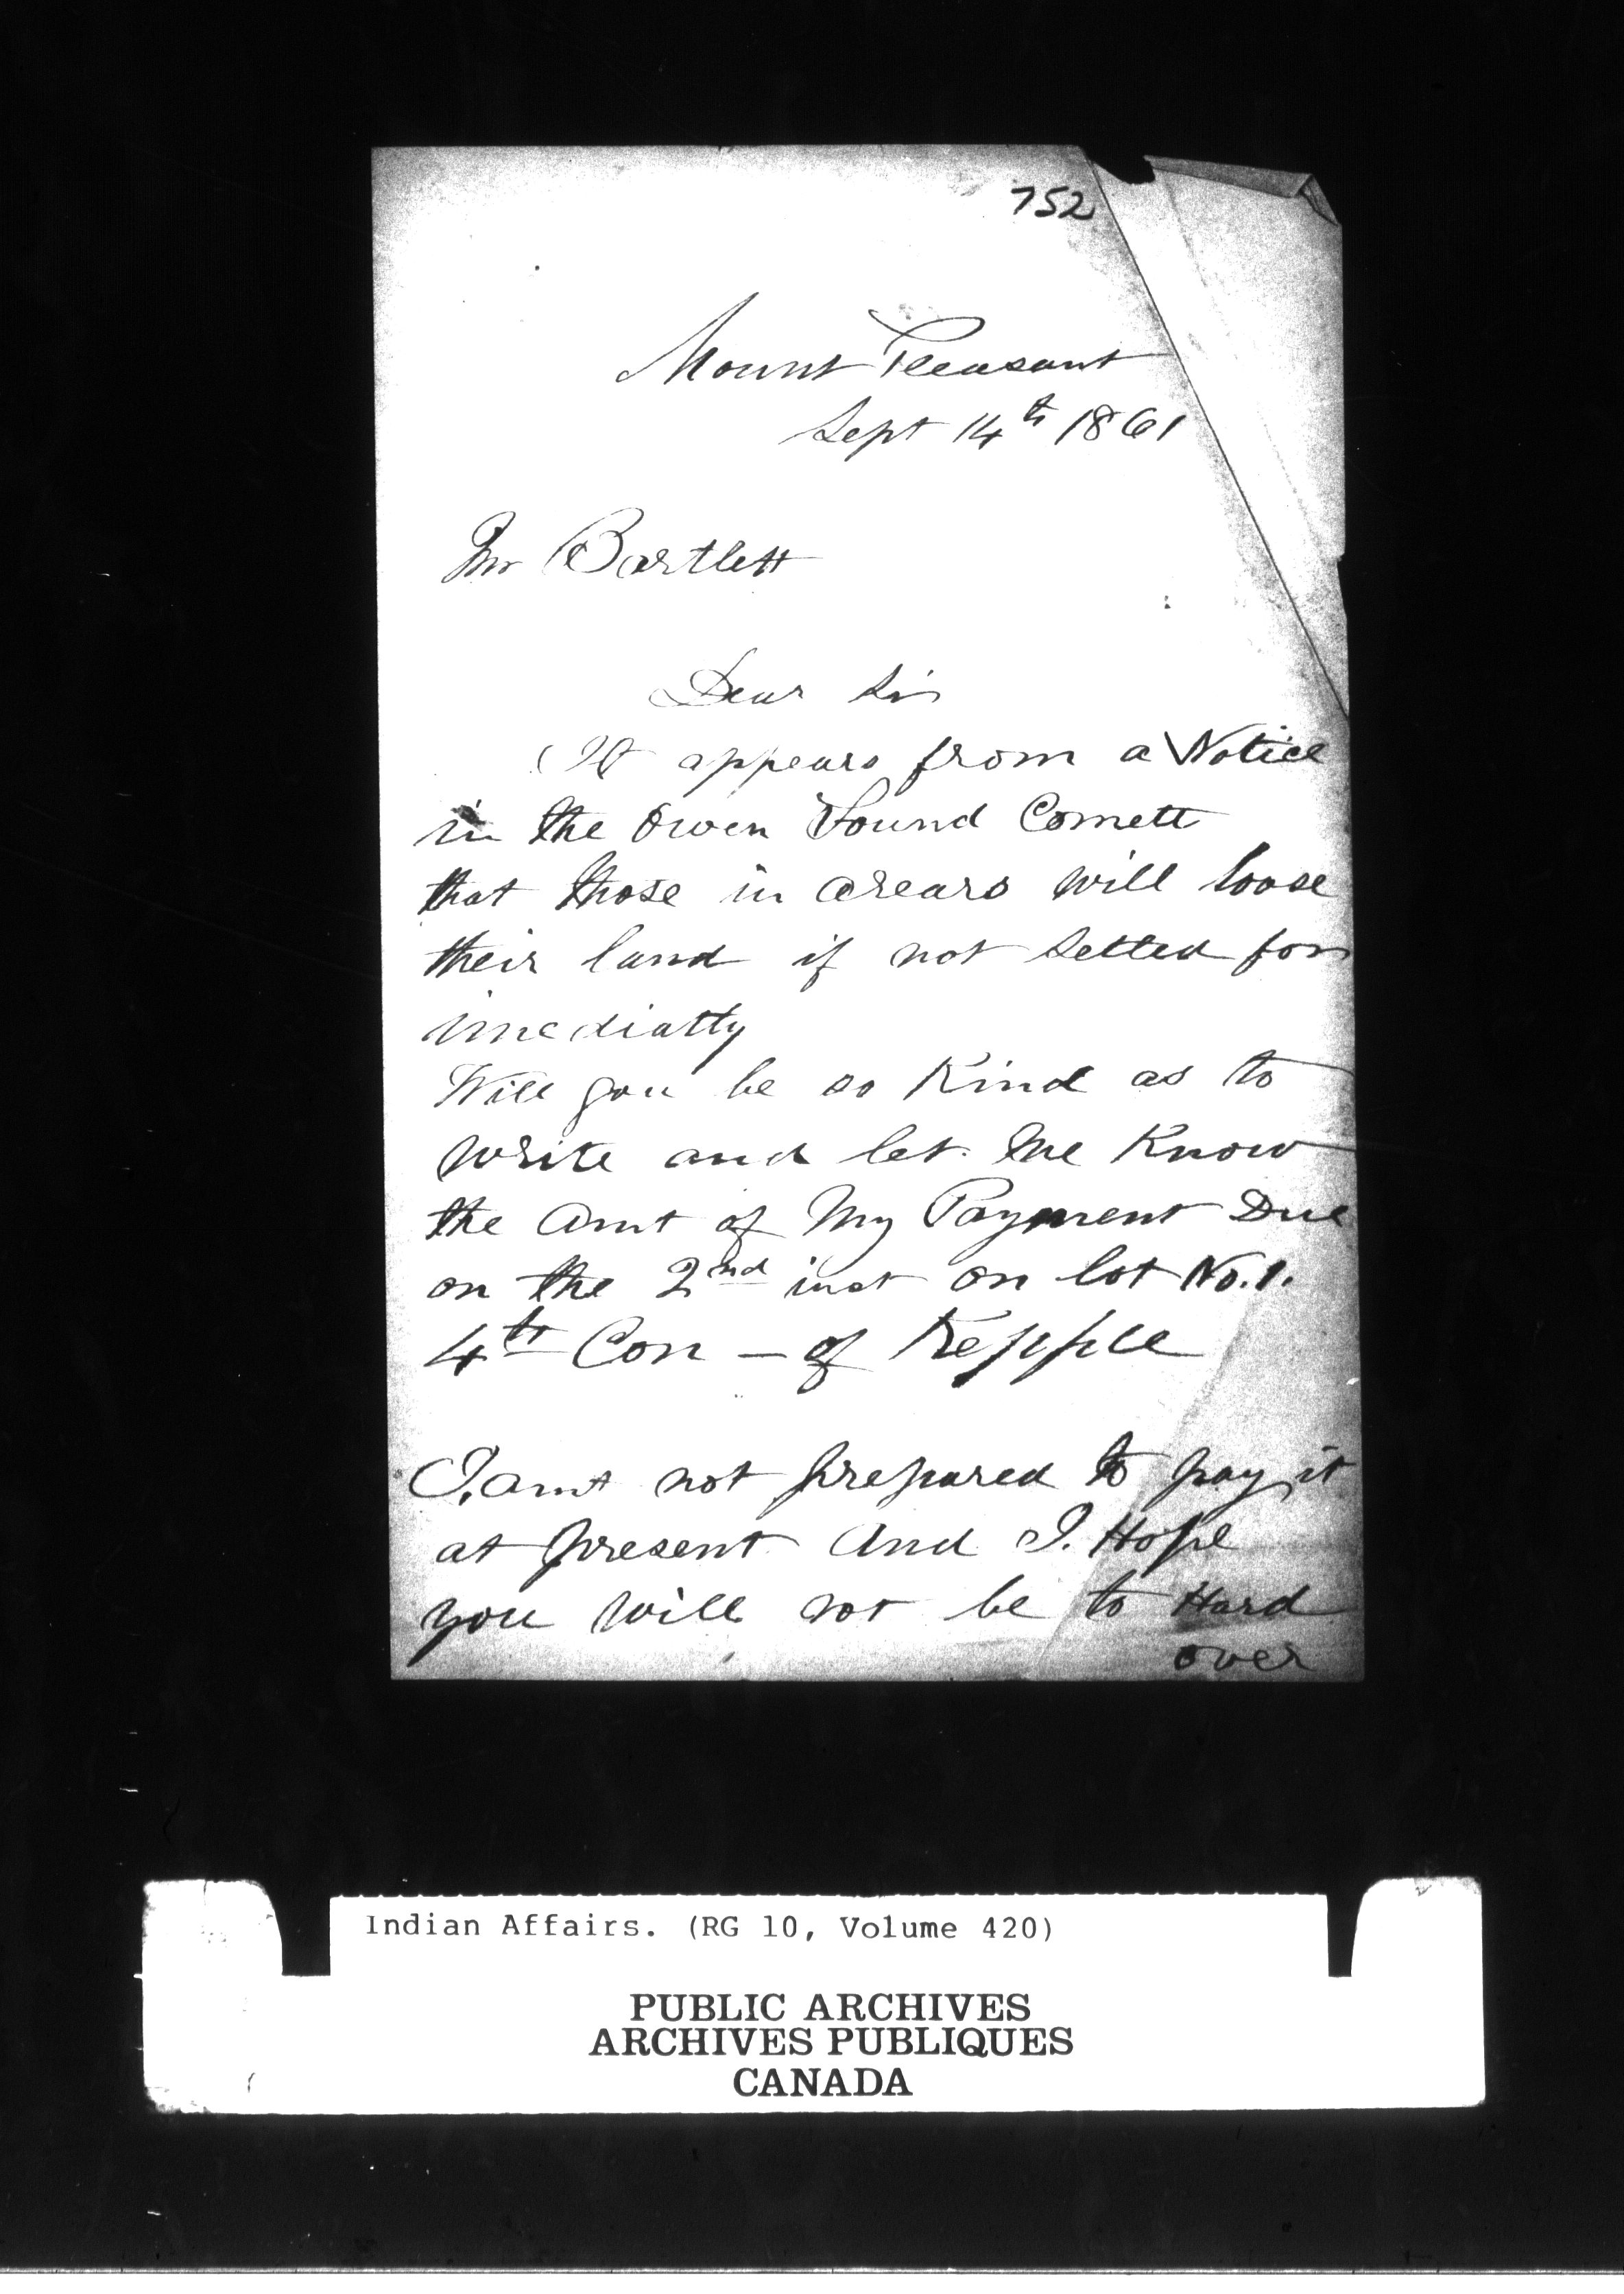 752
Mount Pleasant
Sept 14th 1861
Mr Bartlett
Dear Sir
It appears from a Notice
in the Owen Sound Comett
that those in arears will loose
their land if not settled for
imediatly
Will you be so Kind as to
write and let me Know
the Amt of My Payment Due
on the 2nd inst on lot No. 1.
4th Con - of Kepple
I. amt not prepared to pay it
at present And I. Hope
you will not be to Hard
over
Indian Affairs. (RG 10, Volume 420)
PUBLIC ARCHIVES
ARCHIVES PUBLIQUES
CANADA